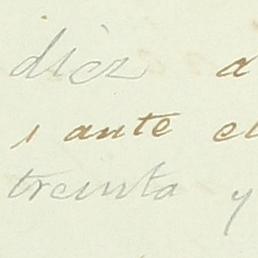 diez a
sante el
treinta y